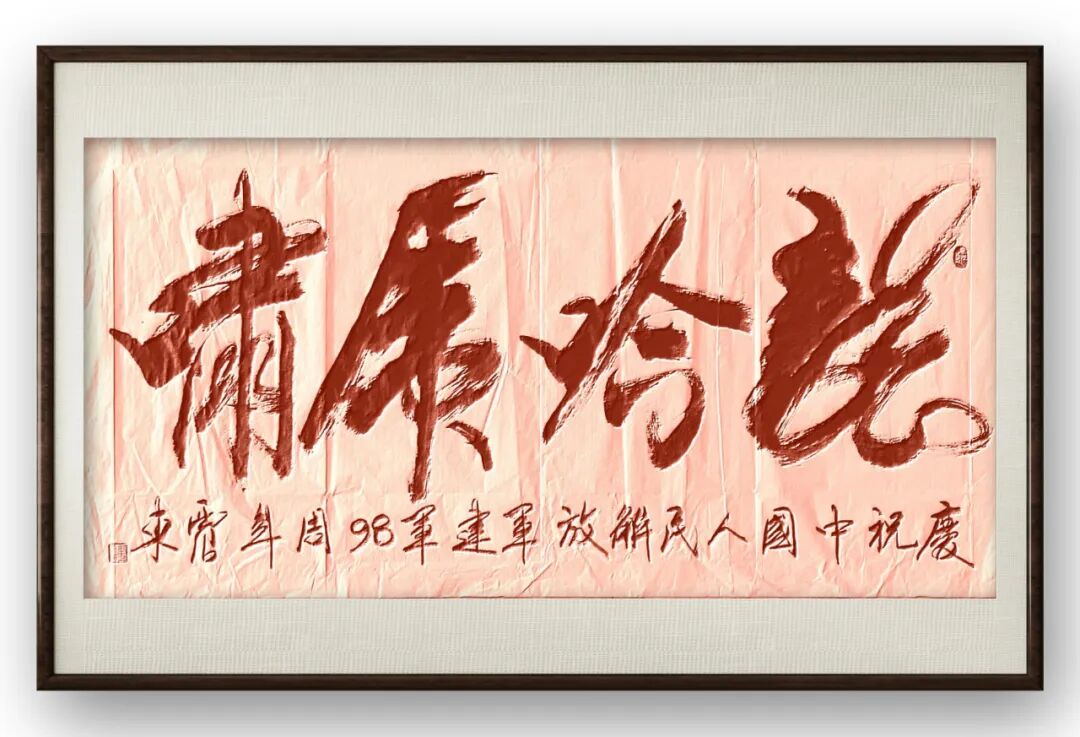 龍吟虎嘯
慶祝中國人民解放軍建軍98周年霄東